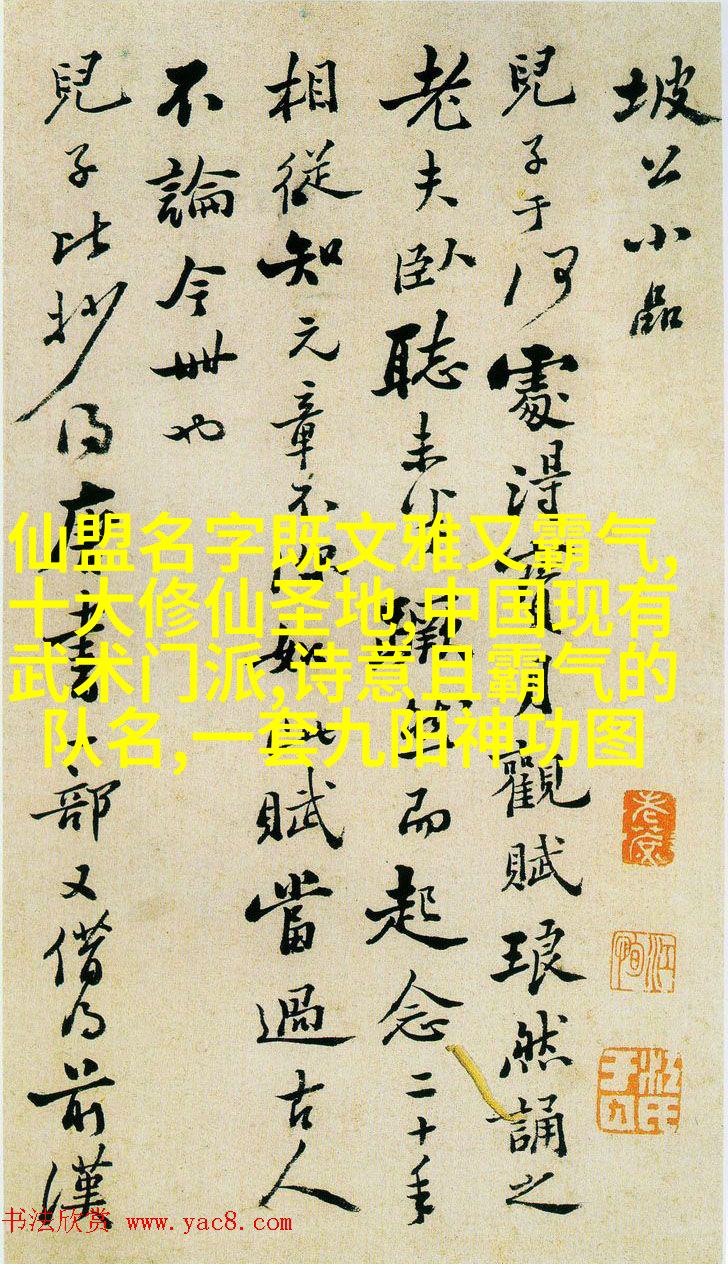 坡公小品
兒子于何處得寶月觀賦琅然誦之
老夫臥聽未半躍然而起念二十年
相從知元章不如此賦當過古人
不論今世也
兒子比抄得唐書部又借得前漢
仙盟名字既文雅又霸气,
十大修仙圣地,中国现有
武术门派,诗意且霸气的
队名,一套九阳神功图
书法欣赏 www.yac8.com